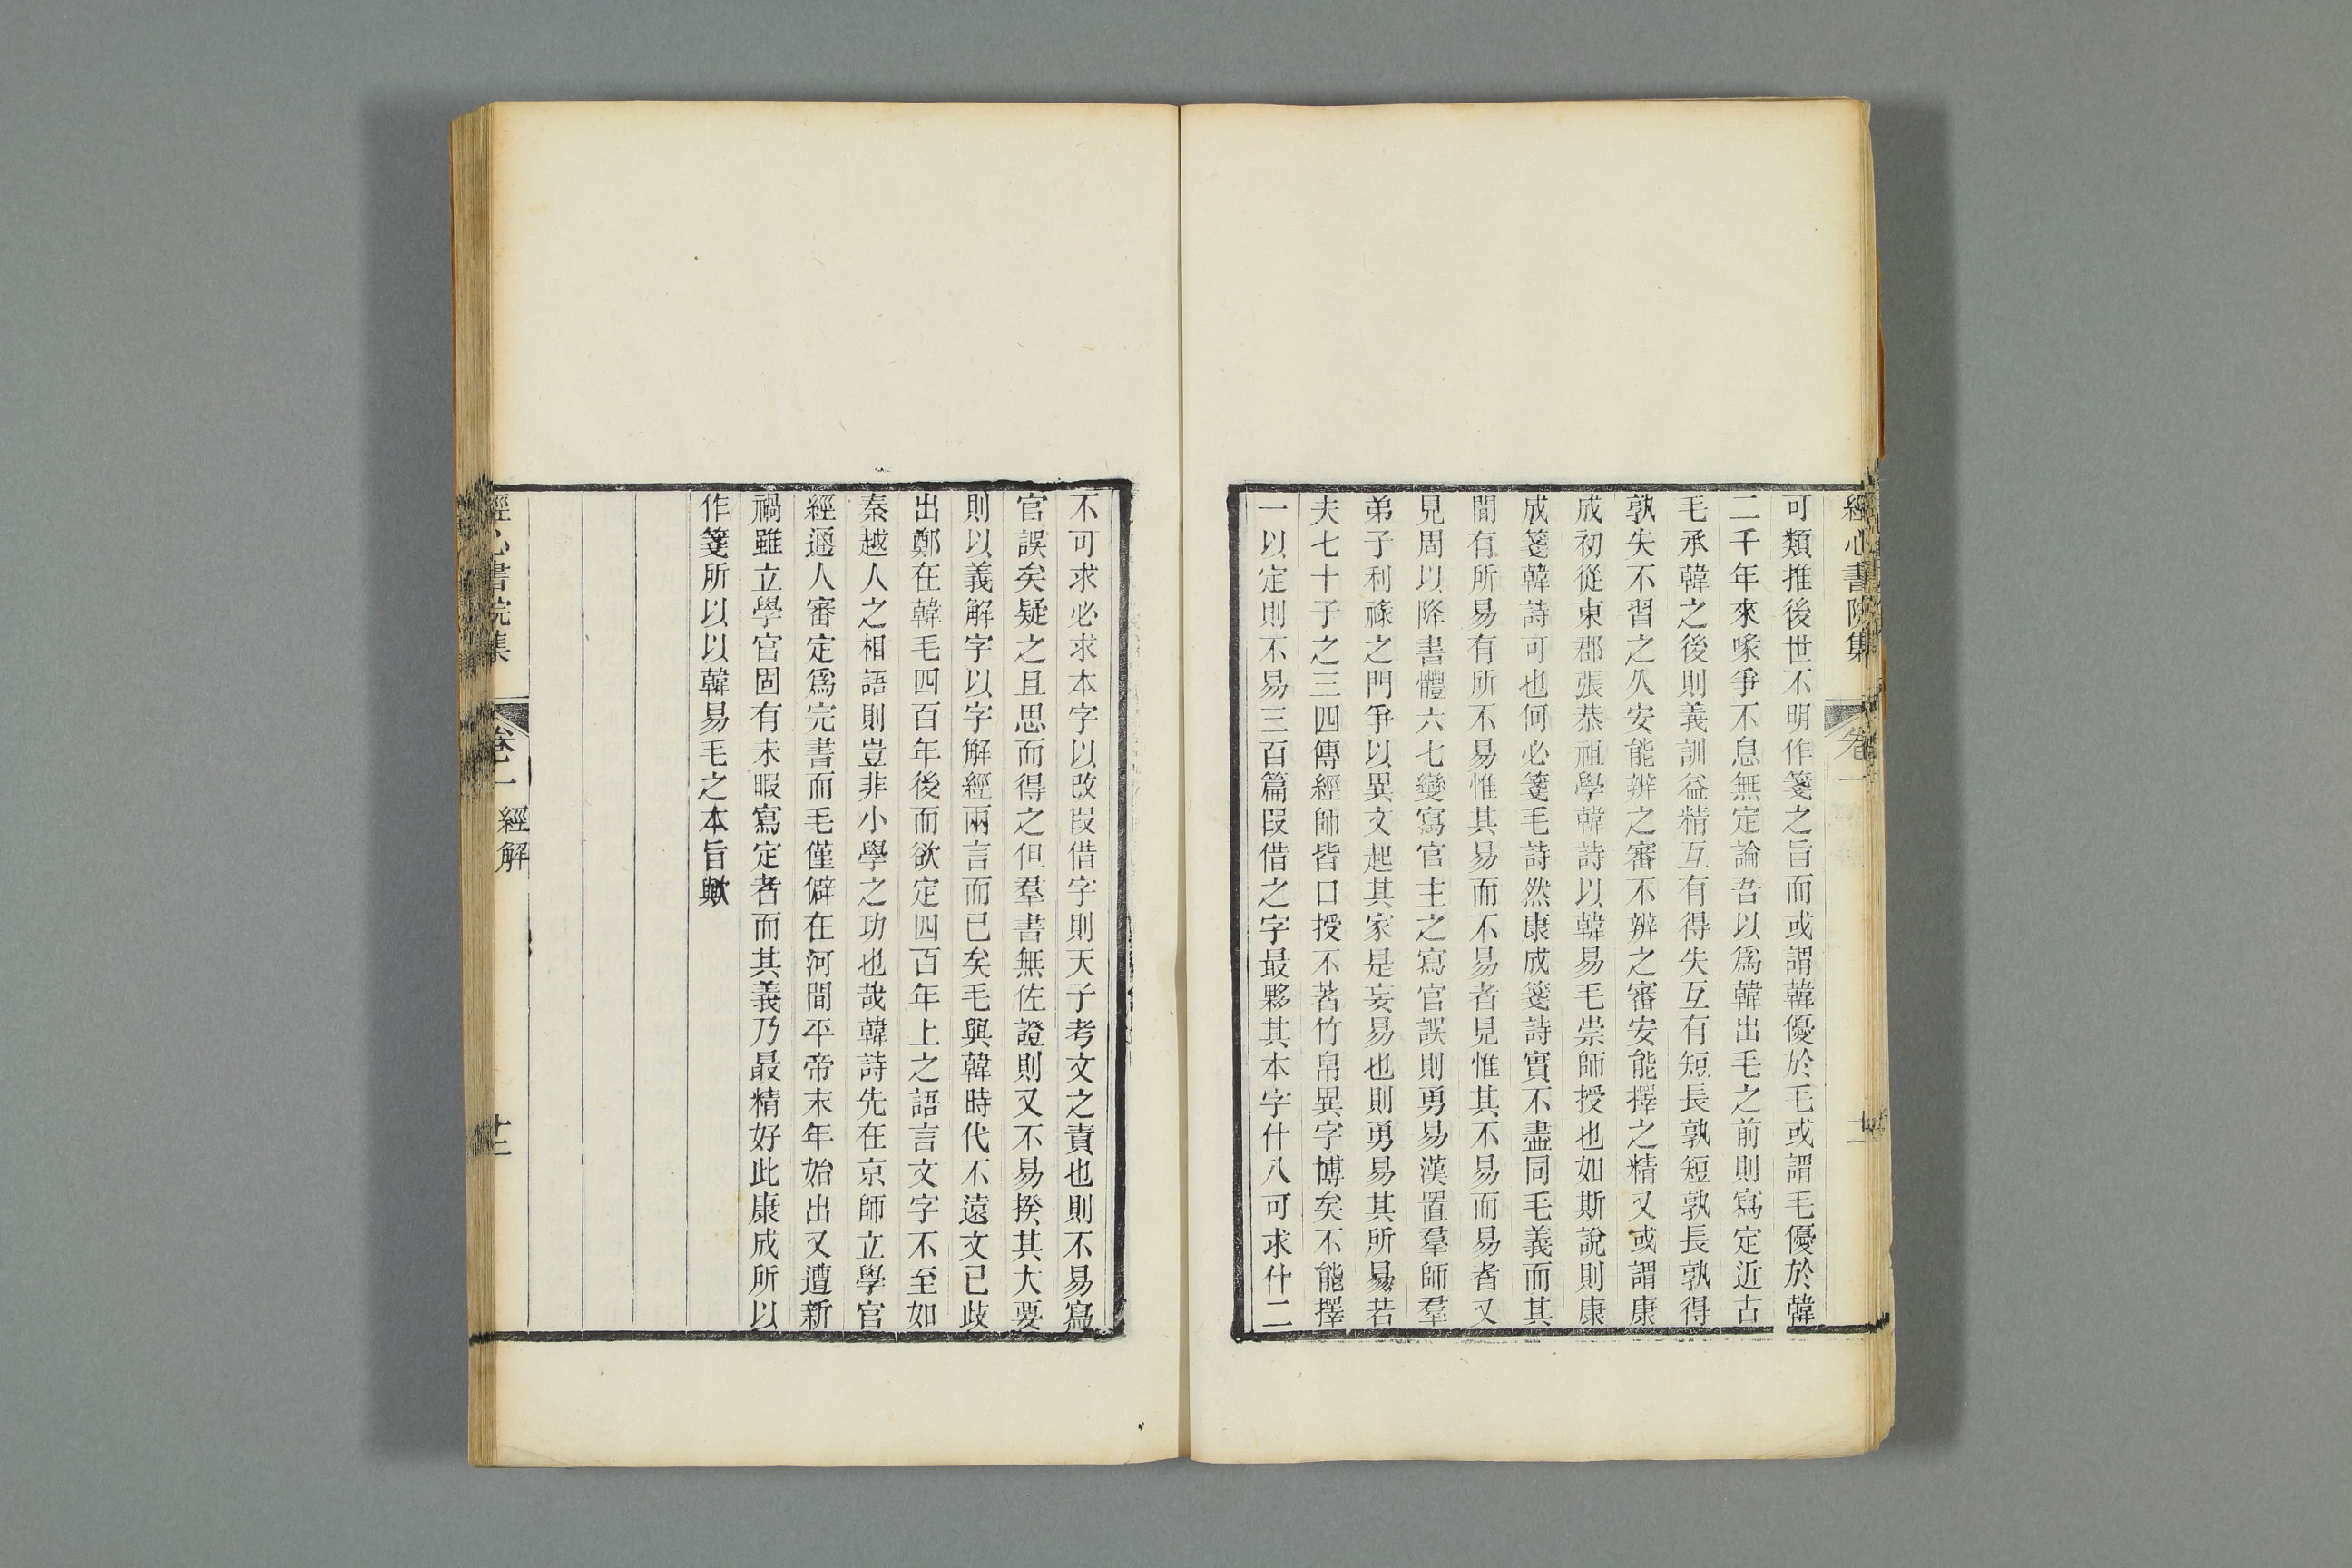 經心書院集 卷一
可類推後世不明作箋之旨而或謂韓優於毛或謂毛優於韓
二千年來喙爭不息無定論吾以爲韓出毛之前則寫定近古
毛承韓之後則義訓益精互有得失互有短長孰短孰長孰得
孰失不習之久安能辨之審不辨之審安能擇之精又或謂康
成初從東郡張恭祖學韓詩以韓易毛崇師授也如斯說則康
成箋韓詩可也何必箋毛詩然康成箋詩實不盡同毛義而其
間有所易有所不易惟其易而不易者見惟其不易而易者又
見周以降書體六七變寫官主之寫官誤則勇易漢置羣師羣
弟子利祿之門爭以異文起其家是妄易也則勇易其所易若
夫七十子之三四傳經師皆口授不著竹帛異字博矣不能擇
一以定則不易三百篇叚借之字最夥其本字什八可求什二
不可求必求本字以改叚借字則天子考文之責也則不易寫
官誤矣疑之且思而得之但羣書無佐證則又不易揆其大要
則以義解字以字解經兩言而已矣毛與韓時代不遠文已歧
出鄭在韓毛四百年後而欲定四百年上之語言文字不至如
秦越人之相語則豈非小學之功也哉韓詩先在京師立學官
經通人審定爲完書而毛僅僻在河間平帝末年始出又遭新
禍雖立學官固有未暇寫定者而其義乃最精好此康成所以
作箋所以以韓易毛之本旨歟
經心書院集 卷一 經解